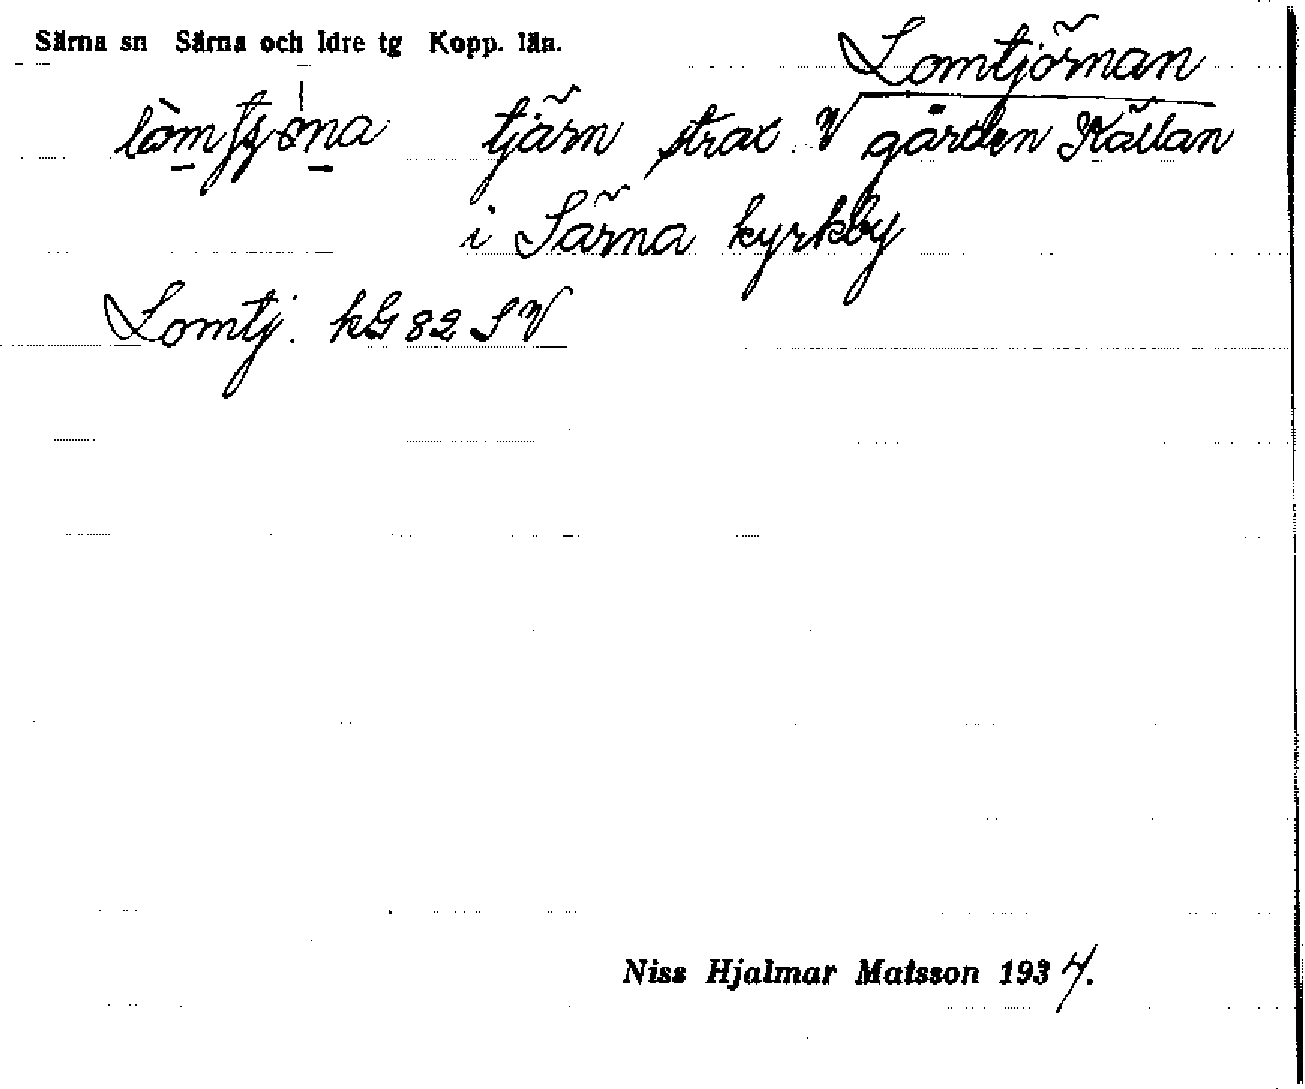 Särna sn Särna och Idre tg Kopp. län.
Lomtjörnan
tjärn strax V gården Källan
i Särna kyrkby
Lomtj. kG 82 SV
Niss Hjalmar Matsson 1934.